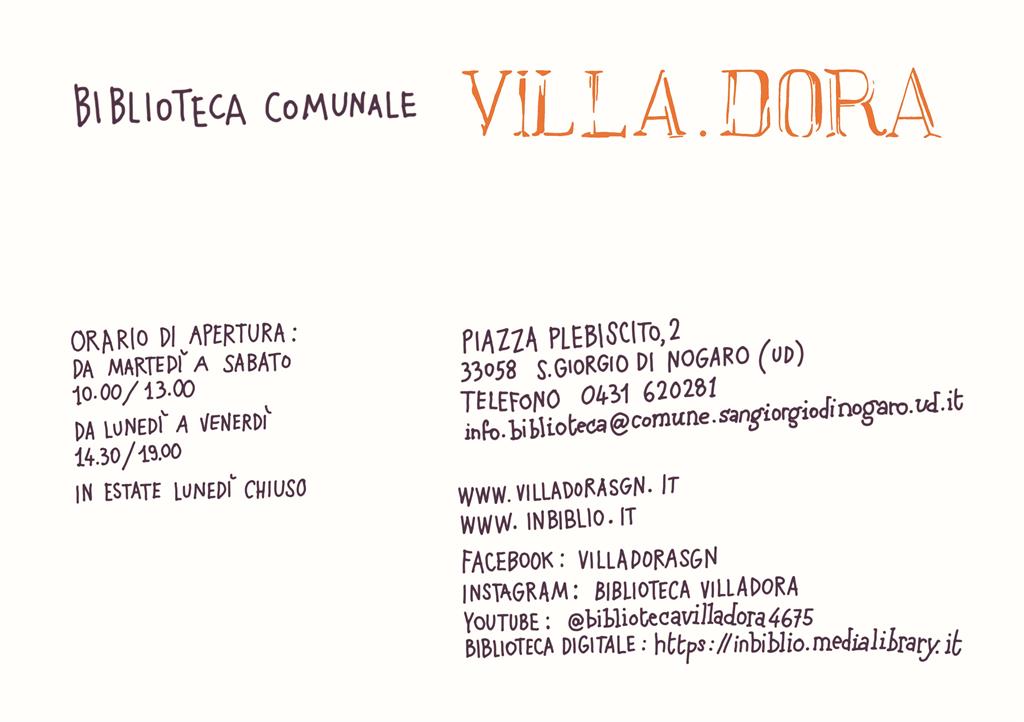 BIBLIOTECA COMUNALE VILLA.DORA
ORARIO DI APERTURA:
DA MARTEDÌ A SABATO
10.00/13.00
DA LUNEDÌ A VENERDÌ
14.30/19.00
IN ESTATE LUNEDÌ CHIUSO
PIAZZA PLEBISCITO, 2
33058 S.GIORGIO DI NOGARO (UD)
TELEFONO 0431 620281
info.biblioteca@comune.sangiorgiodinogaro.ud.it
WWW.VILLADORASGN.IT
WWW.INBIBLIO.IT
FACEBOOK: VILLADORASGN
INSTAGRAM: BIBLIOTECA VILLADORA
YOUTUBE: @bibliotecavilladora4675
BIBLIOTECA DIGITALE: https://inbiblio.medialibrary.it